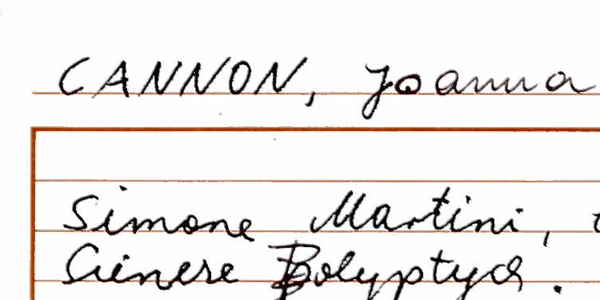 CANNON, Joanna
Simone Martini,
Sienese Polyptych.